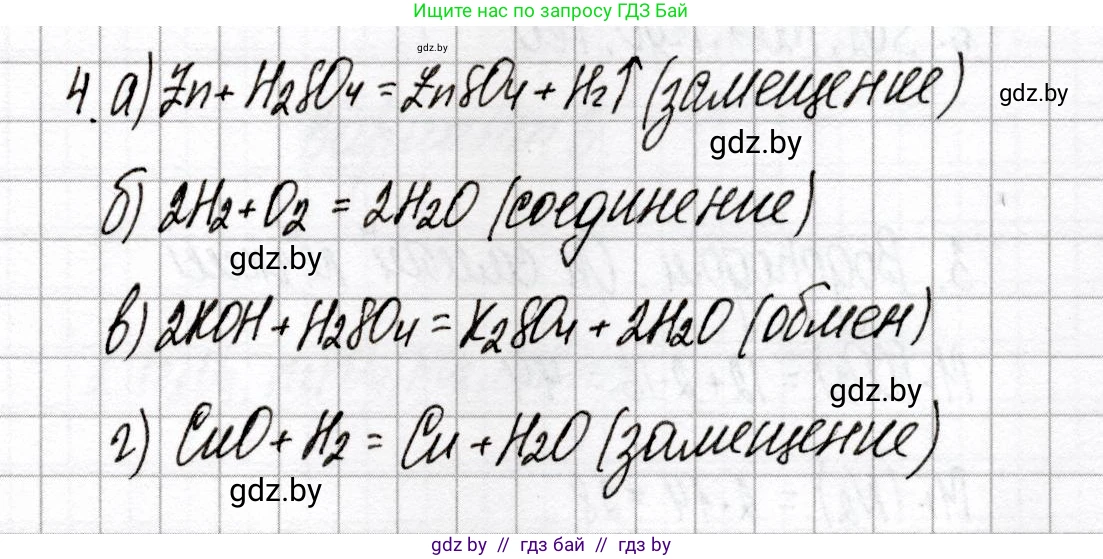 Ищите нас по запросу ГДЗ Бай
gdz.by
4. а) Zn + H₂SO₄ = ZnSO₄ + H₂↑ (замещение)
gdz.by
gdz.by
б) 2H₂ + O₂ = 2H₂O (соединение)
gdz.by
в) 2KOH + H₂SO₄ = K₂SO₄ + 2H₂O (обмен)
gdz.by
г) CuO + H₂ = Cu + H₂O (замещение)
gdz.by
gdz.by // гдз бай // gdz.by